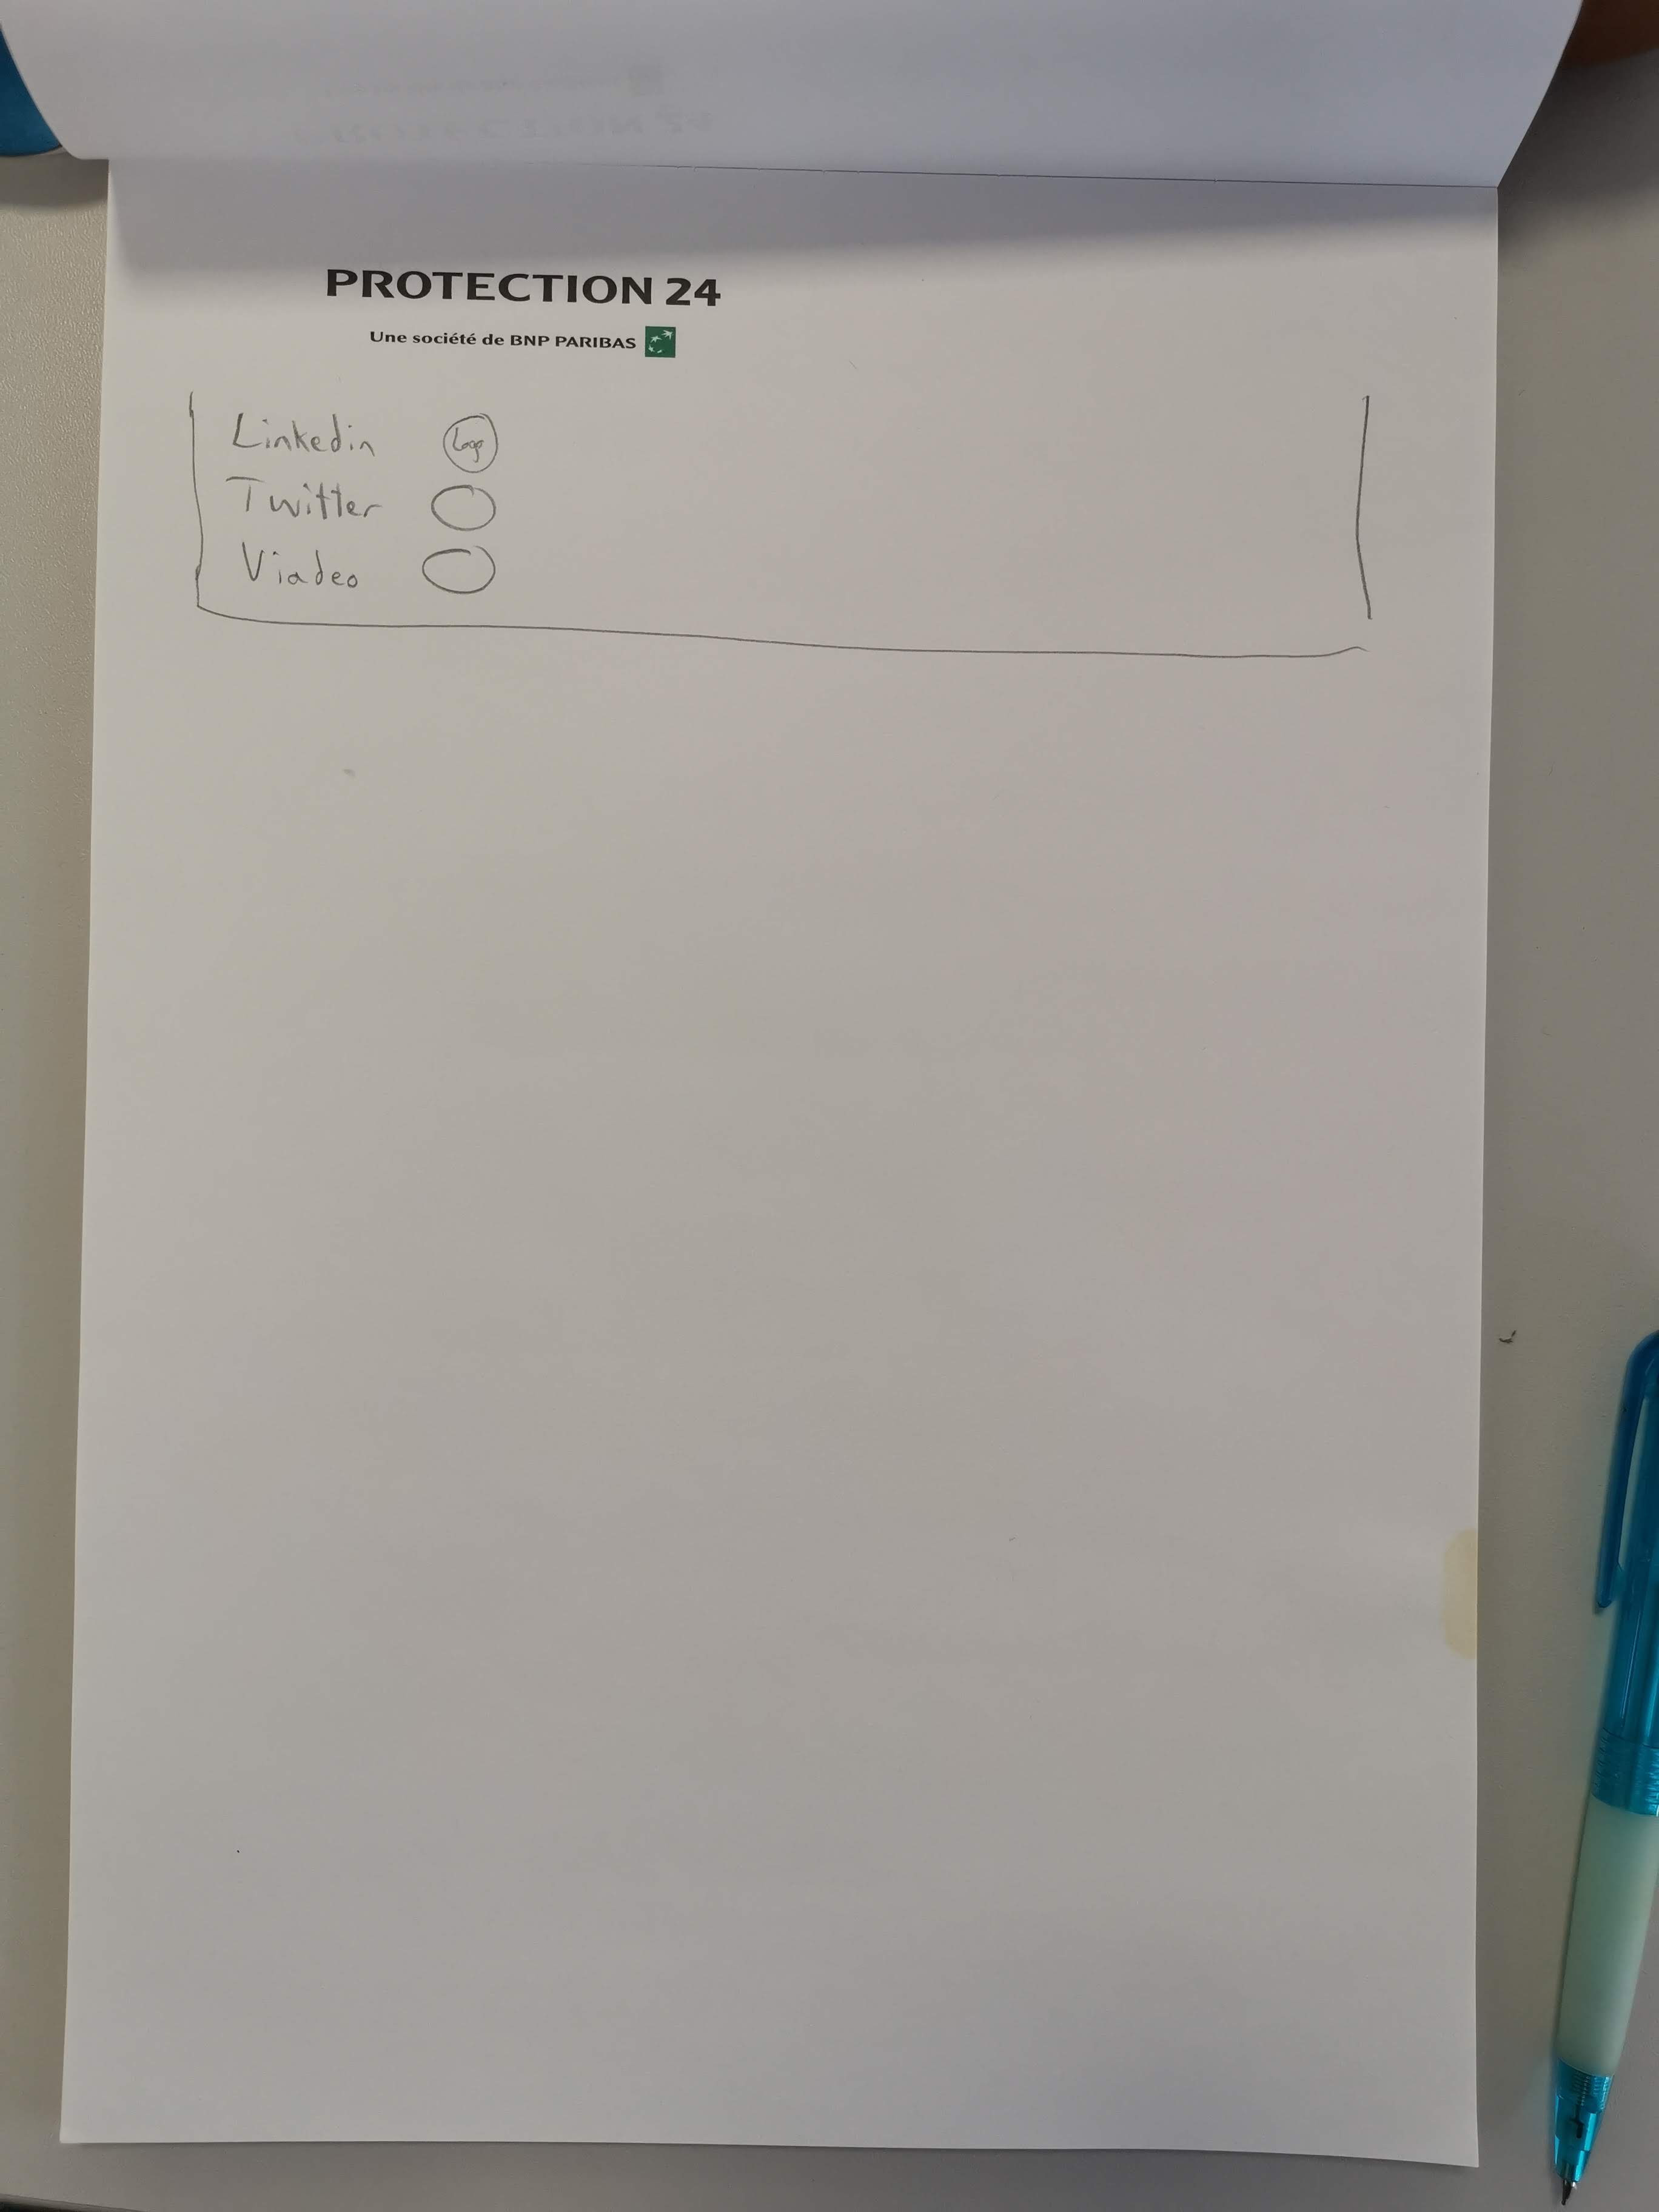 PROTECTION 24
Une société de BNP PARIBAS
Linkedin Logo
Twitter
Viadeo